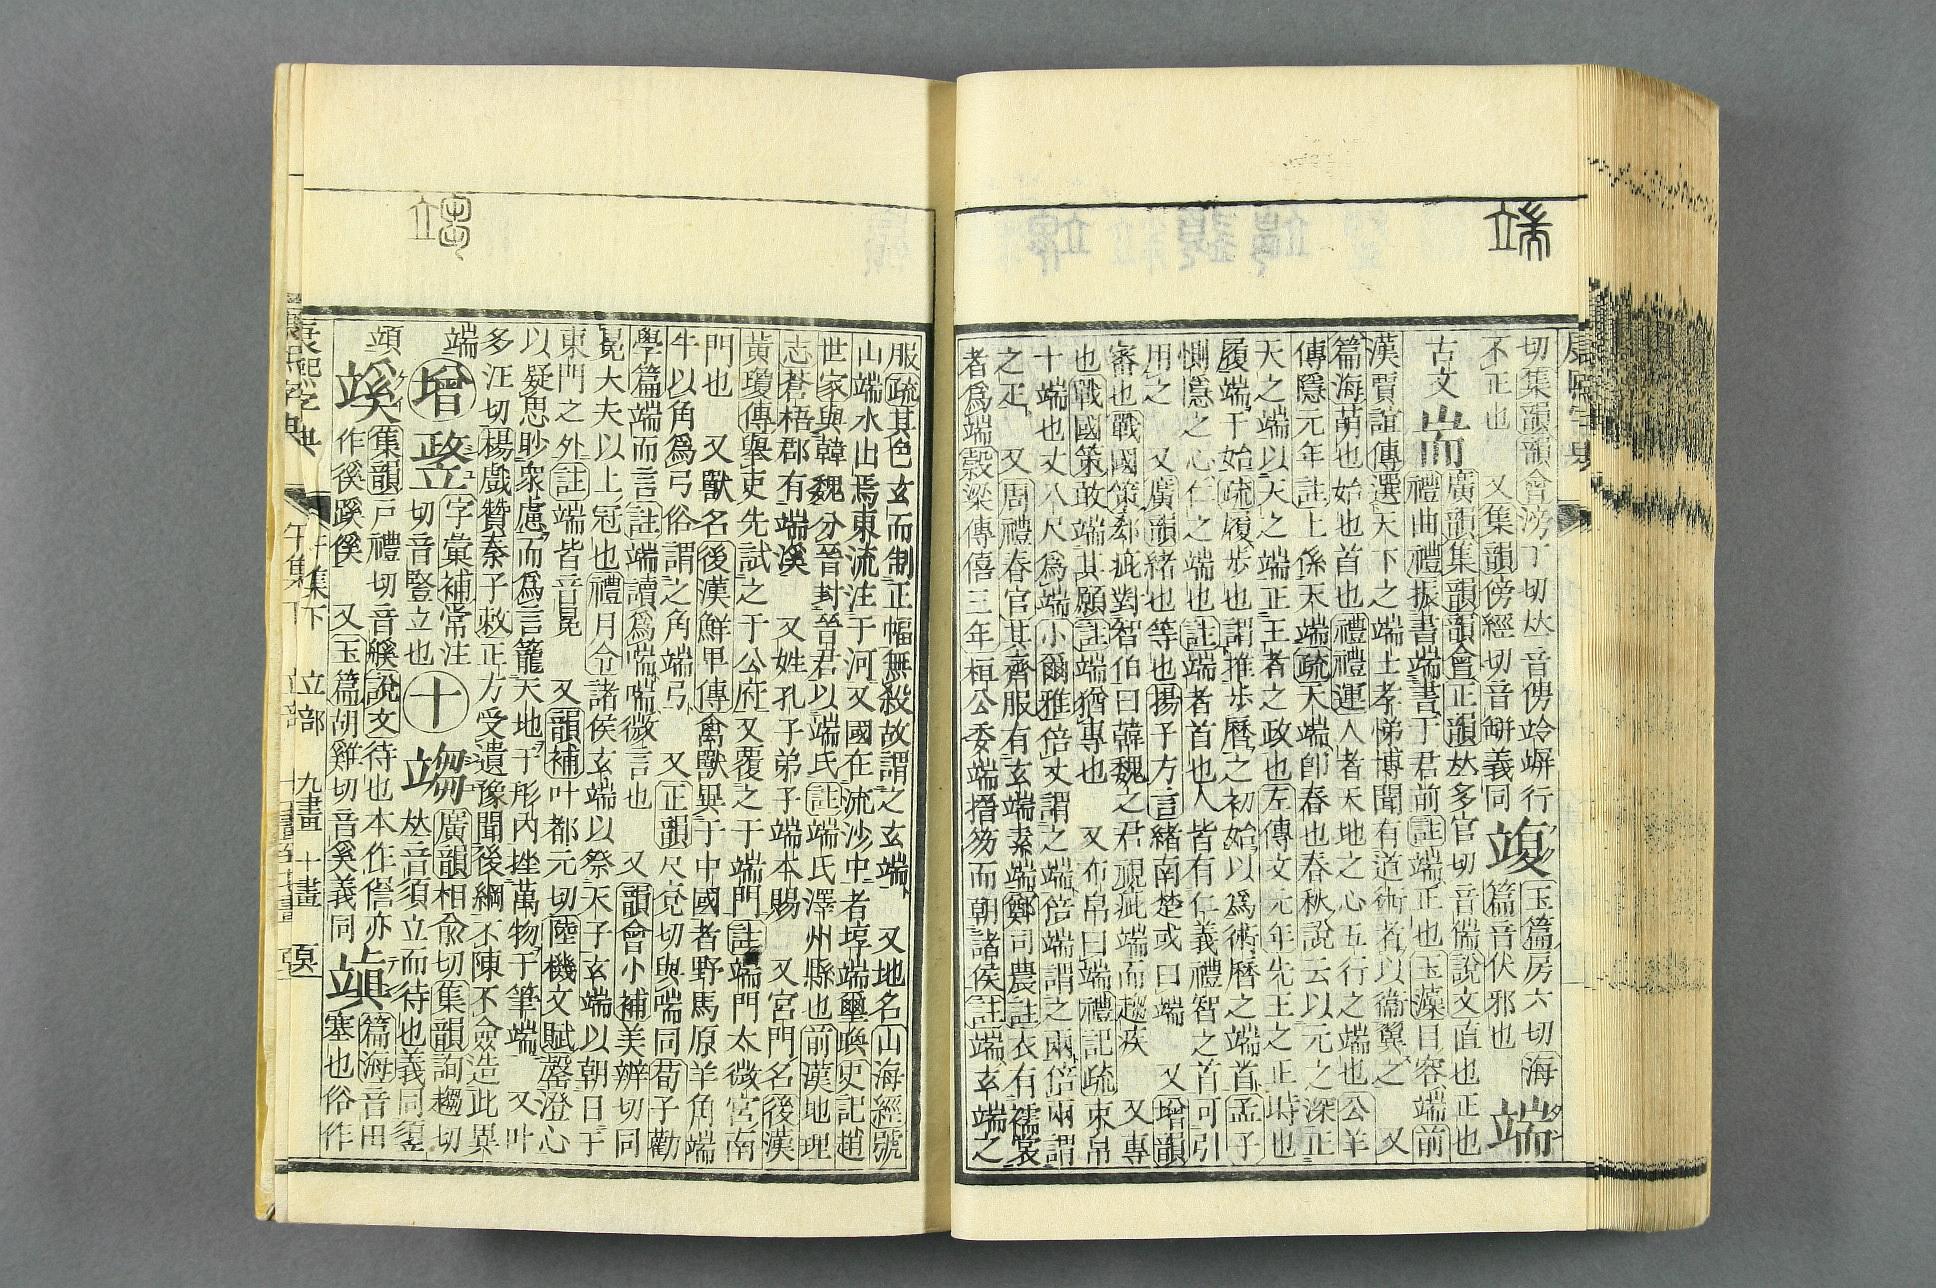 端
切集韻韻會滂丁切𠀤音傡竛竮行
不正也 又集韻傍經切音缾義同
竣
玉篇房六切海
篇音伏邪也
端
古文
耑
廣韻集韻韻會正韻𠀤多官切音偳說文直也正也
禮曲禮振書端書于君前註端正也玉藻目容端前
漢賈誼傳選天下之端士孝悌博聞有道術者以衞翼之 又
篇海萌也始也首也禮禮運人者天地之心五行之端也公羊
傳隱元年註上係天端疏天端卽春也春秋說云以元之深正
天之端以天之端正王者之政也左傳文元年先王之正時也
履端于始疏履步也謂推步曆之初始以爲術曆之端首孟子
惻隱之心仁之端也註端者首也人皆有仁義禮智之首可引
用之 又廣韻緒也等也揚子方言緒南楚或曰端 又增韻
審也戰國策郄疵對智伯曰韓魏之君視疵端而趨疾 又專
也戰國策敢端其願註端猶專也 又布帛曰端禮記疏束帛
十端也丈八尺爲端小爾雅倍丈謂之端倍端謂之兩倍兩謂
之疋 又周禮春官其齊服有玄端素端鄭司農註衣有襦裳
者爲端穀梁傳僖三年桓公委端搢笏而朝諸侯註端玄端之
服疏其色玄而制正幅無殺故謂之玄端 又地名山海經號
山端水出焉東流注于河又國在流沙中者埻端璽㬇史記趙
世家與韓魏分晉封晉君以端氏註端氏澤州縣也前漢地理
志蒼梧郡有端溪 又姓孔子弟子端木賜 又宮門名後漢
黃瓊傳舉吏先試之于公府又覆之于端門註端門太微宮南
門也 又獸名後漢鮮甲傳禽獸異于中國者野馬原羊角端
牛以角爲弓俗謂之角端弓 又正韻尺兗切與喘同荀子勸
學篇端而言註端讀爲喘喘微言也 又韻會小補美辨切同
冕大夫以上冠也禮月令諸侯玄端以祭天子玄端以朝日于
東門之外註端皆音冕 又韻補叶都元切陸機文賦罄澄心
以疑思眇衆慮而爲言籠天地于形內挫萬物于筆端 又叶
多汪切楊戲贊秦子敕正方受遺豫聞後綱不陳不僉造此異
端
增
竪
字彙補常注
切音豎立也
十
䇓
廣韻相兪切集韻詢趨切
𠀤音須立而待也義同須
頚
䜁
集韻戸禮切音徯說文待也本作徯亦
作徯蹊傒 又玉篇胡雞切音奚義同
䇯
篇海音田
塞也俗作
康熙字典 午集下 立部 九畫 十畫